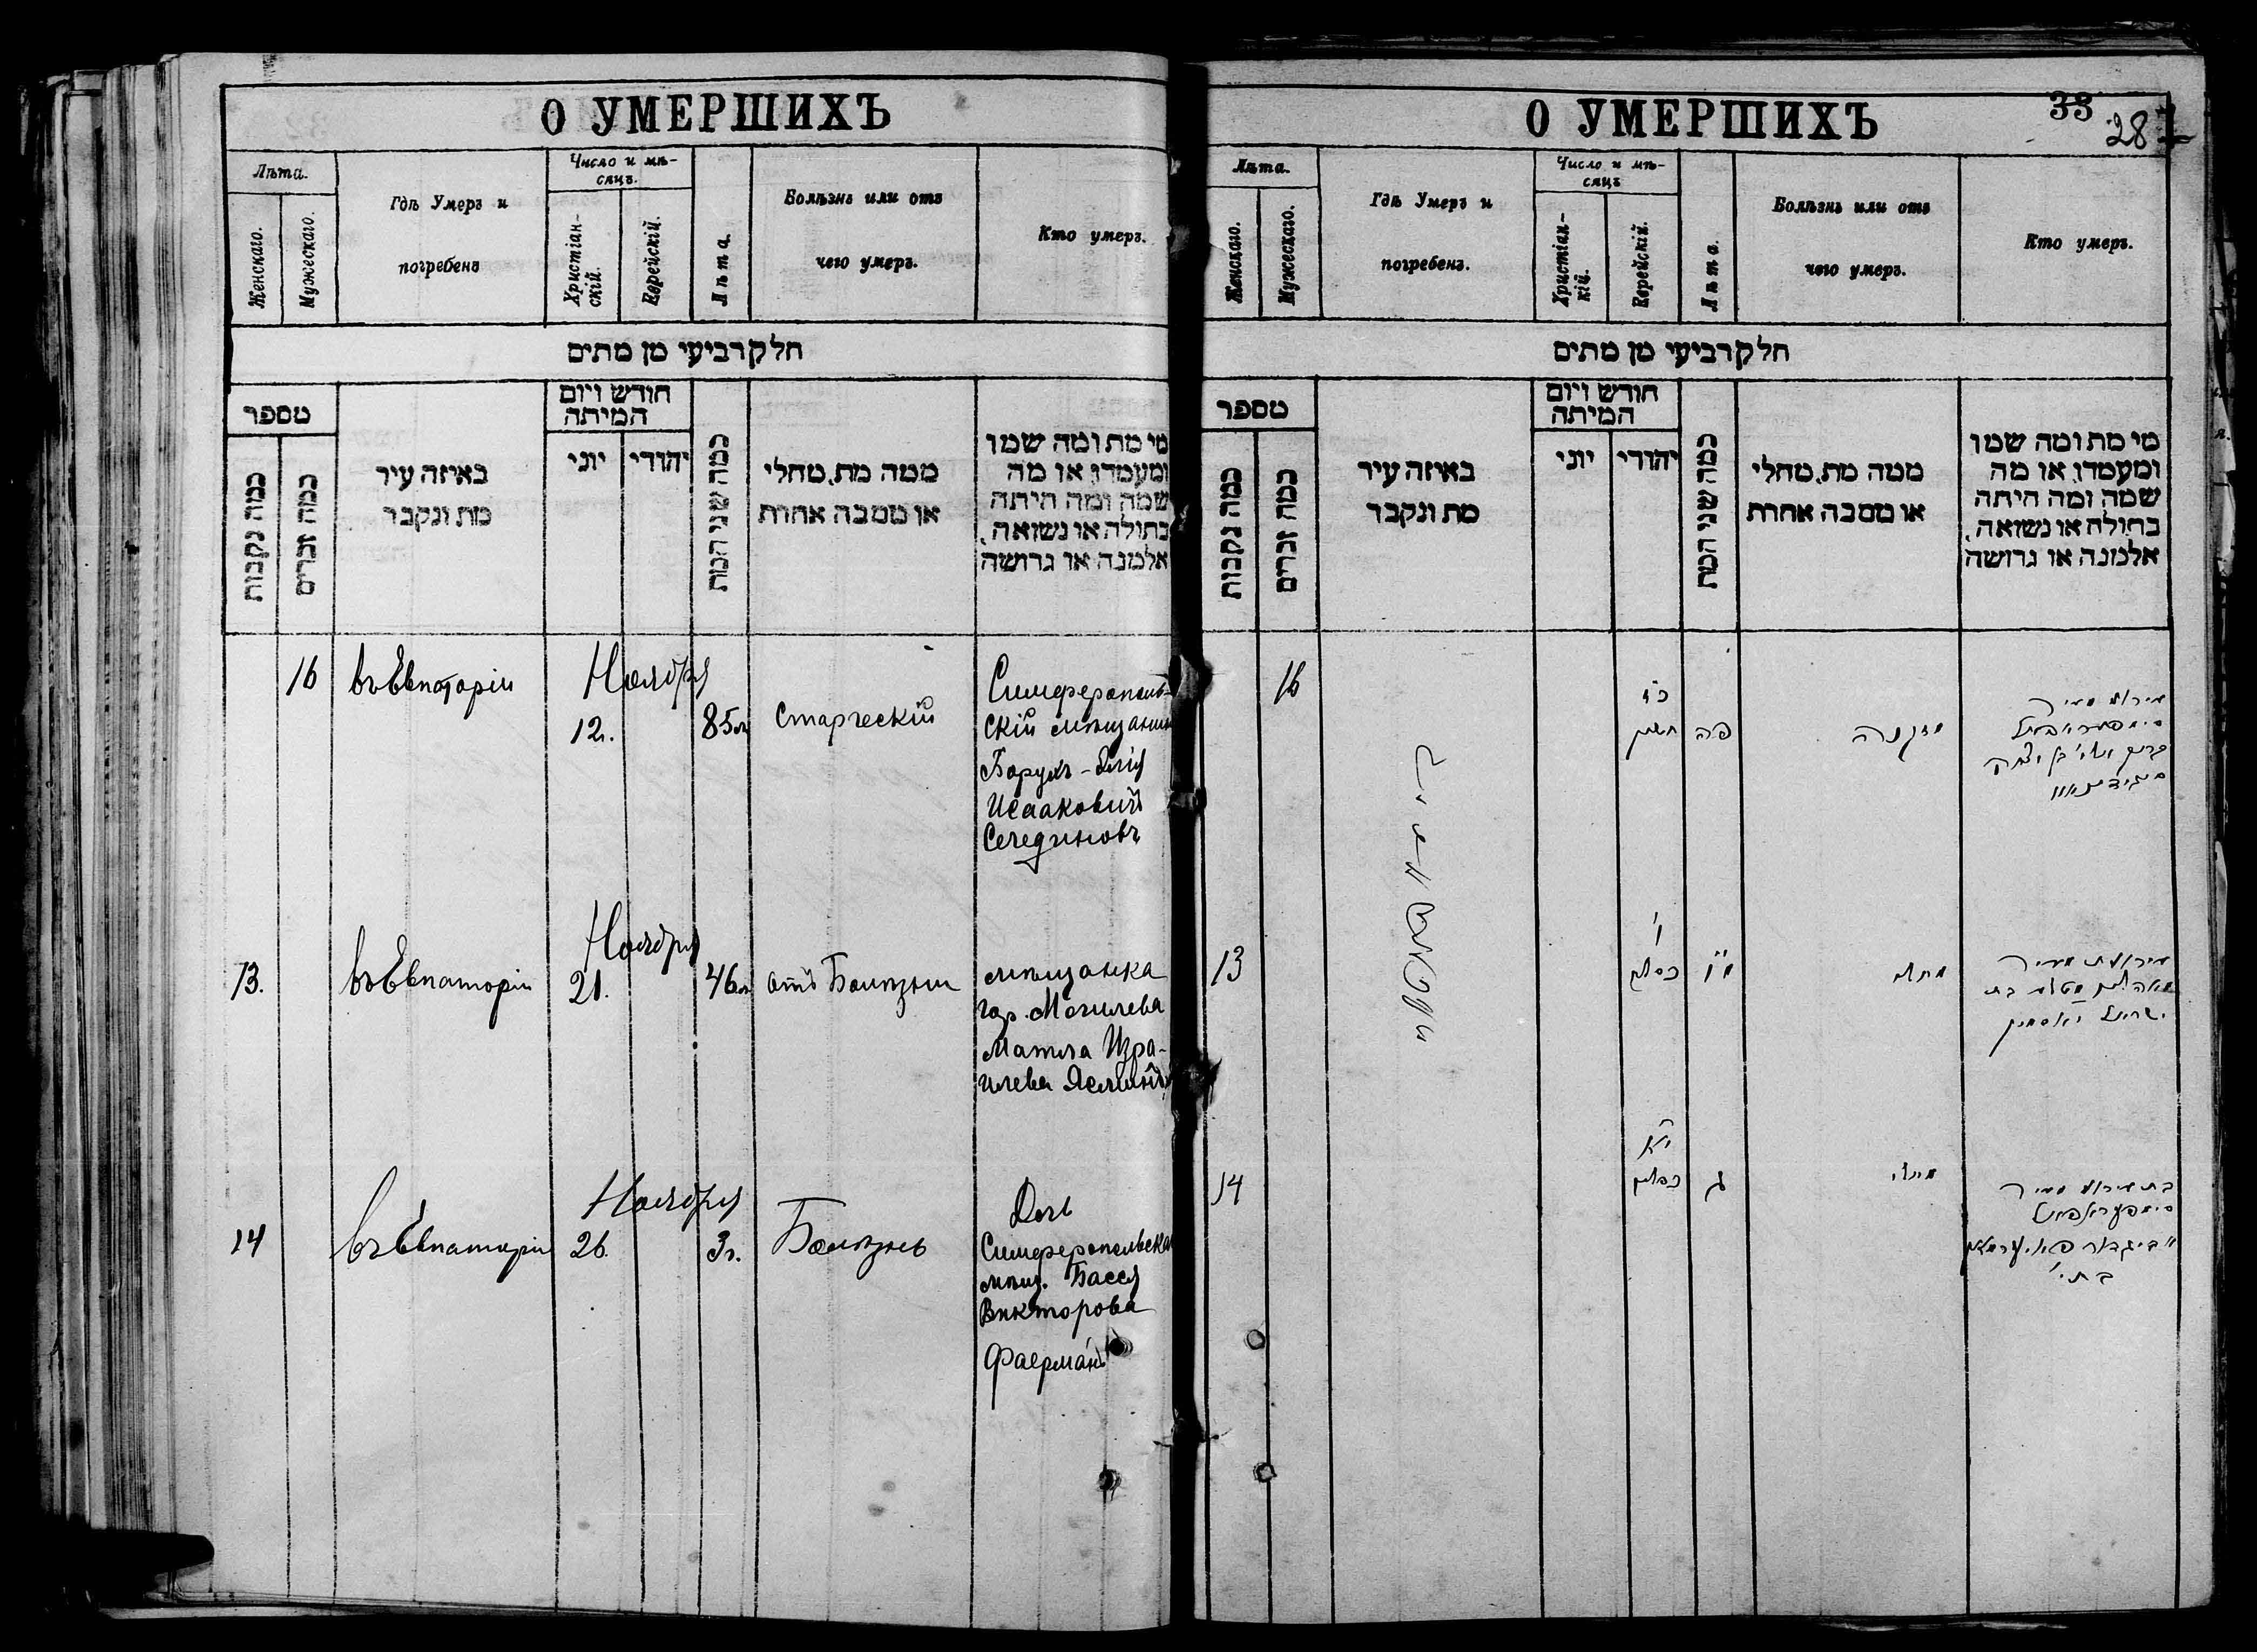 О УМЕРШИХЪ
Лѣта.
Женскаго.
Мужескаго.
Гдѣ Умеръ и
погребенъ
Число и мѣ-
сяцъ.
Христіан-
скій.
Еврейскій.
Лѣта.
Болѣзнь или отъ
чего умеръ.
Кто умеръ.
חלק רביעי מן מתים
מספר
כמה נקבות
כמה זכרים
באיזה עיר
מת ונקבר
חודש ויום
המיתה
יוני
יהודי
כמה שני המת
ממה מת, מחלי
או מסבה אחרת
מי מת ומה שמו
ומעמדו, או מה
שמה ומה היתה
בתולה או נשואה,
אלמנה או גרושה
16
въ Евпаторіи
Ноября
12.
85
Старческій
Симферополь-
скій мѣщанинъ
Борухъ-Элія
Исааковичъ
Сегединовъ
13.
въ Евпаторіи
Ноября
21.
46
отъ Болѣзни
мѣщанка
гор. Могилева
Матла Изра-
илева
14
въ Евпаторіи
Ноября
26.
3г.
Болѣзнь
Дочь
Симферопольска
мѣщ. Бася
Викторова
Фаерманъ
О УМЕРШИХЪ
33
28
Лѣта.
Женскаго.
Мужескаго.
Гдѣ Умеръ и
погребенъ.
Число и мѣ-
сяцъ
Христіан-
кій.
Еврейскій.
Лѣта.
Болѣзнь или отъ
чего умеръ.
Кто умеръ.
חלק רביעי מן מתים
מספר
כמה נקבות
כמה זכרים
באיזה עיר
מת ונקבר
חודש ויום
המיתה
יוני
יהודי
כמה שני המת
ממה מת, מחלי
או מסבה אחרת
מי מת ומה שמו
ומעמדו, או מה
שמה ומה היתה
בתולה או נשואה,
אלמנה או גרושה
16
חשון
פה
מזקנה
13
ו'
כסלו
מ"ו
בת
ישראל
14
י"א
כסלו
ג
בת